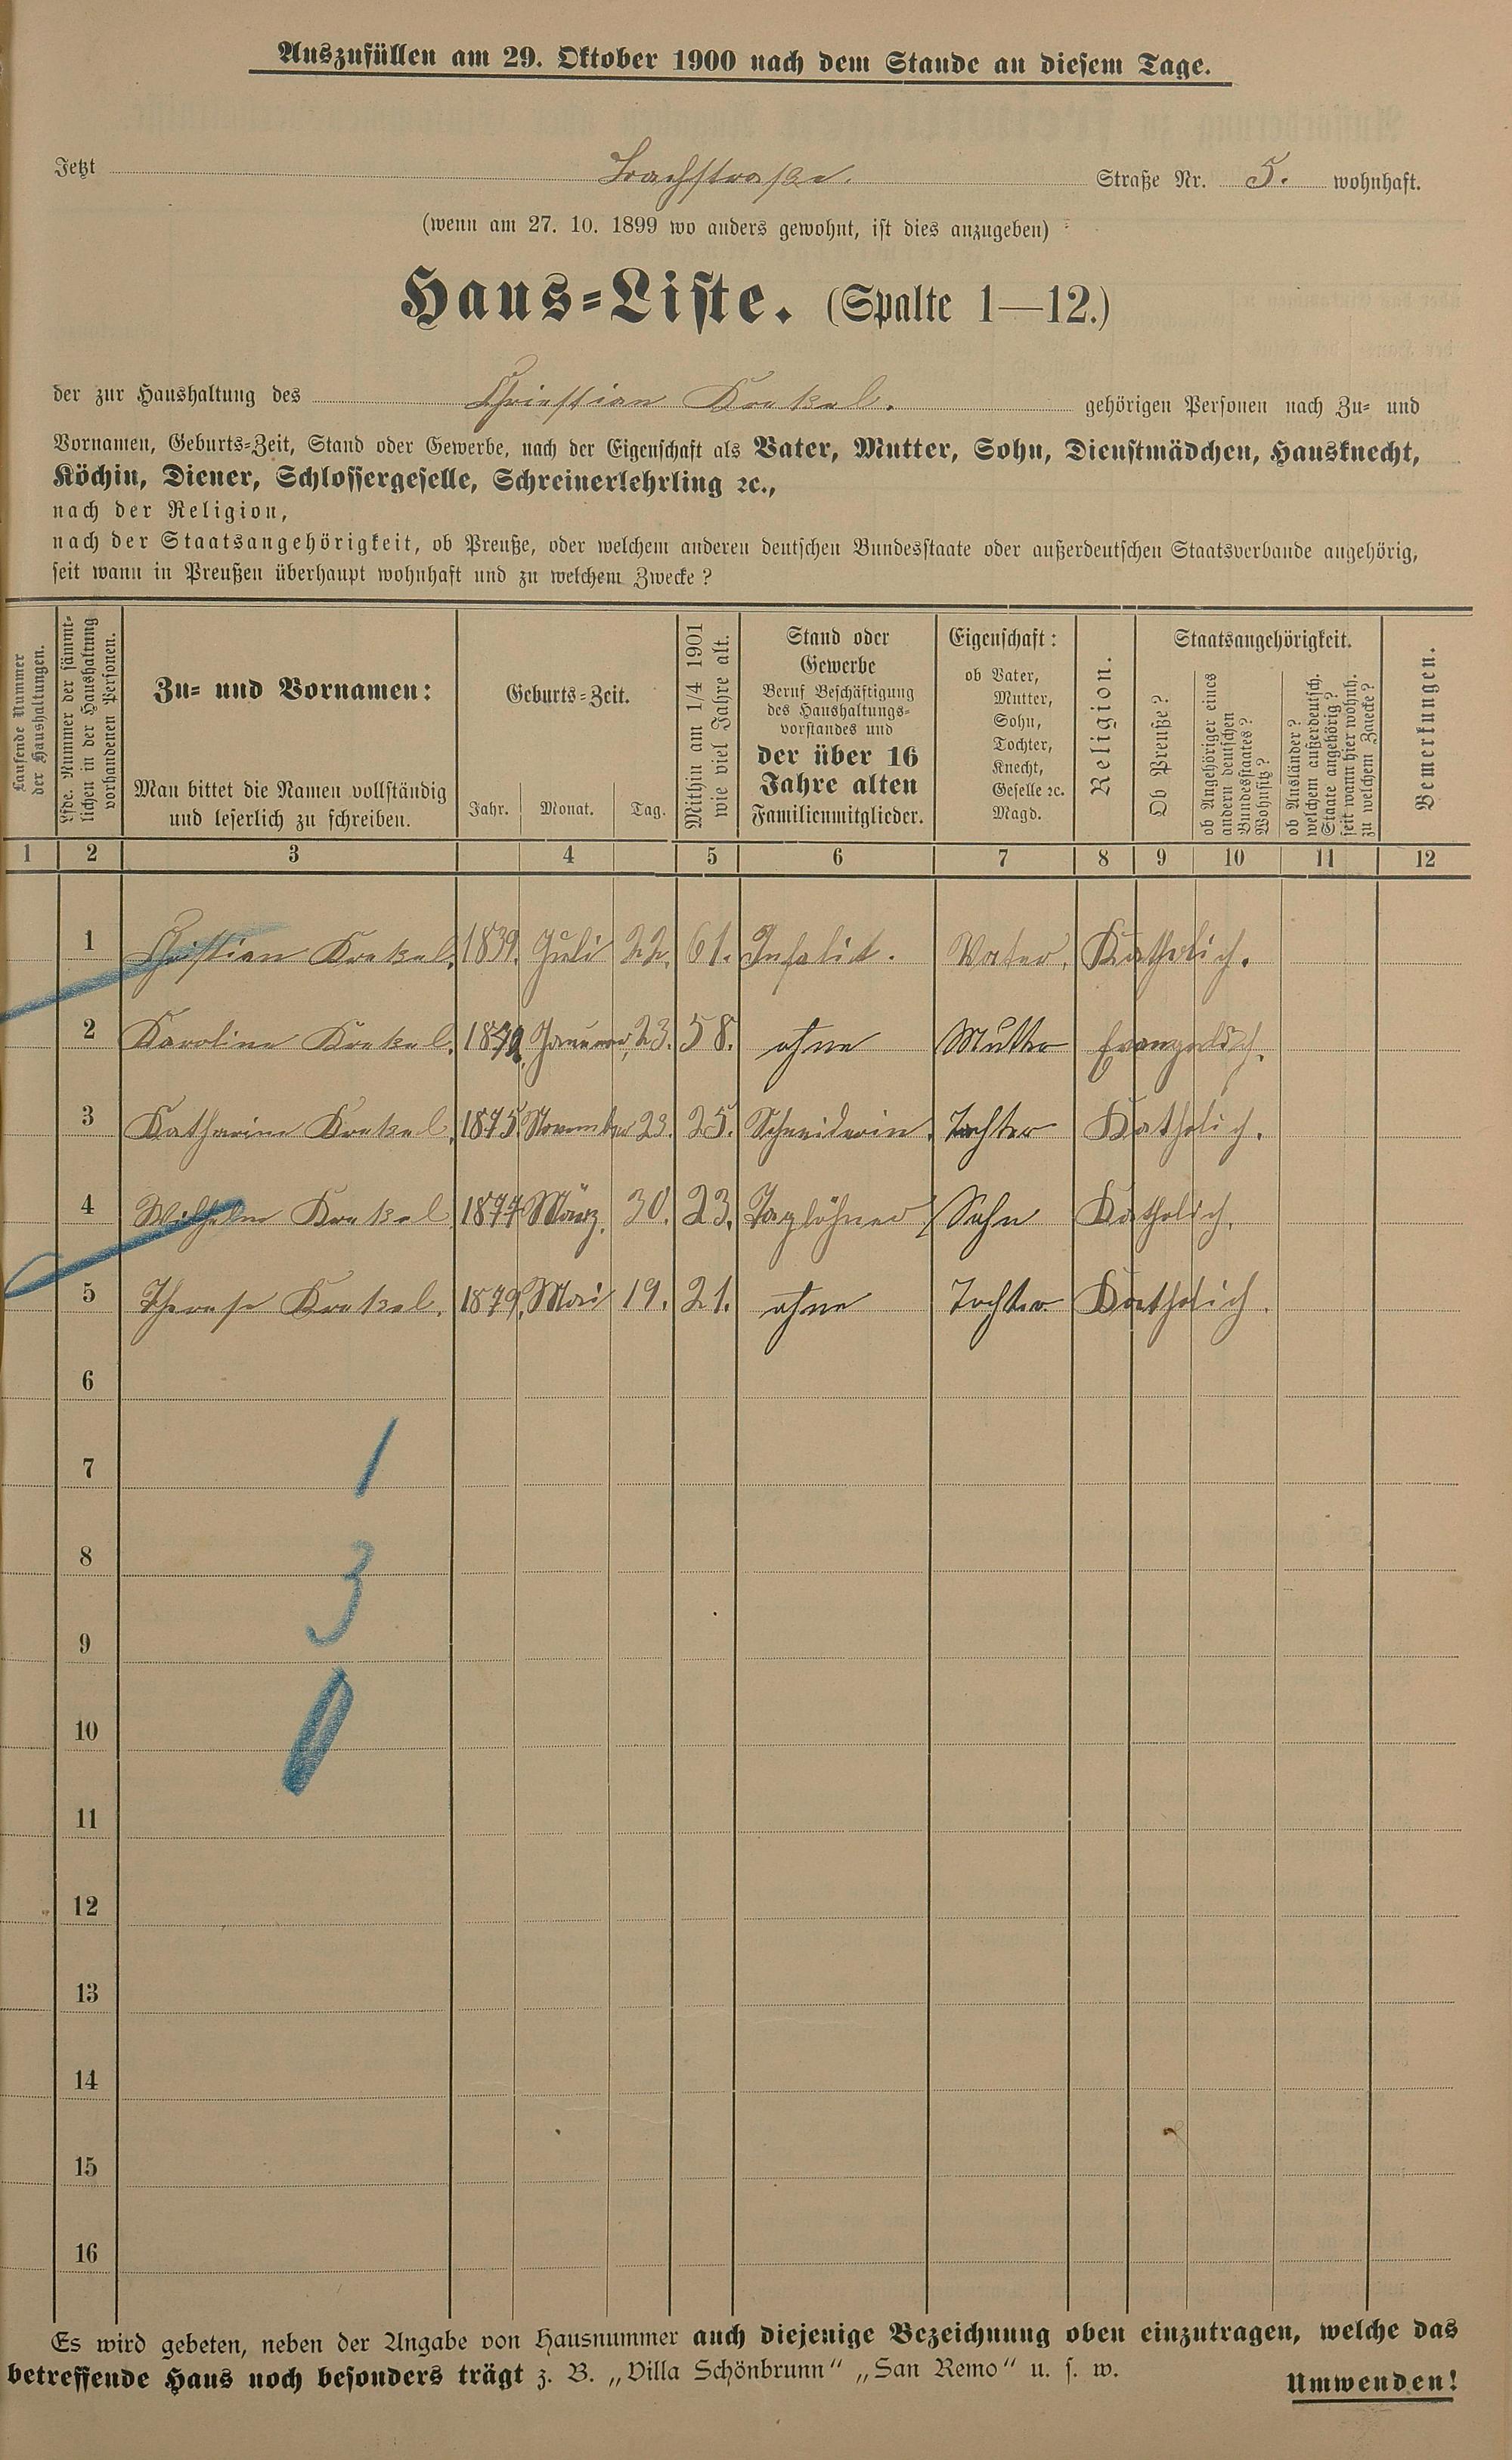 Auszufüllen am 29. Oktober 1900 nach dem Stande an diesem Tage.
Jetzt Bachstraße. Straße Nr. 5. wohnhaft.
(wenn am 27. 10. 1899 wo anders gewohnt, ist dies anzugeben)
Haus-Liste. (Spalte 1—12.)
der zur Haushaltung des Christian Krekel. gehörigen Personen nach Zu- und
Vornamen, Geburts-Zeit, Stand oder Gewerbe, nach der Eigenschaft als Vater, Mutter, Sohn, Dienstmädchen, Hausknecht,
Köchin, Diener, Schlossergeselle, Schreinerlehrling ꝛc.,
nach der Religion,
nach der Staatsangehörigkeit, ob Preuße, oder welchem anderen deutschen Bundesstaate oder außerdeutschen Staatsverbande angehörig,
seit wann in Preußen überhaupt wohnhaft und zu welchem Zwecke?
Laufende Nummer
der Haushaltungen.
Lfde. Nummer der sämmt-
lichen in der Haushaltung
vorhandenen Personen.
Zu- und Vornamen:
Man bittet die Namen vollständig
und leserlich zu schreiben.
Geburts-Zeit.
Jahr. Monat. Tag.
Mithin am 1/4 1901
wie viel Jahre alt.
Stand oder
Gewerbe
Beruf Beschäftigung
des Haushaltungs-
vorstandes und
der über 16
Jahre alten
Familienmitglieder.
Eigenschaft:
ob Vater,
Mutter,
Sohn,
Tochter,
Knecht,
Geselle ꝛc.
Magd.
Religion.
Staatsangehörigkeit.
Ob Preuße?
ob Angehöriger eines
andern deutschen
Bundesstaates?
Wohnsitz?
ob Ausländer?
welchem außerdeutsch.
Staate angehörig?
seit wann hier wohnh.
zu welchem Zwecke?
Bemerkungen.
1 2 3 4 5 6 7 8 9 10 11 12
1 Christian Krekel. 1839. Juli 22. 61. Infalid. Vater. Katholich.
2 Karoline Krekel. 1842. Januar 23. 58. ohne Mutter Evangelisch.
3 Katharine Krekel. 1875. November 23. 25. Schneiderin. Tochter Katholich.
4 Wilhelm Krekel 1877 März. 30. 23. Taglöhner Sohn Katholich.
5 Therese Krekel. 1879. Mai 19. 21. ohne Tochter Katholich.
6
7 1
8 3
9
10 0
11
12
13
14
15
16
Es wird gebeten, neben der Angabe von Hausnummer auch diejenige Bezeichnung oben einzutragen, welche das
betreffende Haus noch besonders trägt z. B. „Villa Schönbrunn“ „San Remo“ u. s. w.
Umwenden!